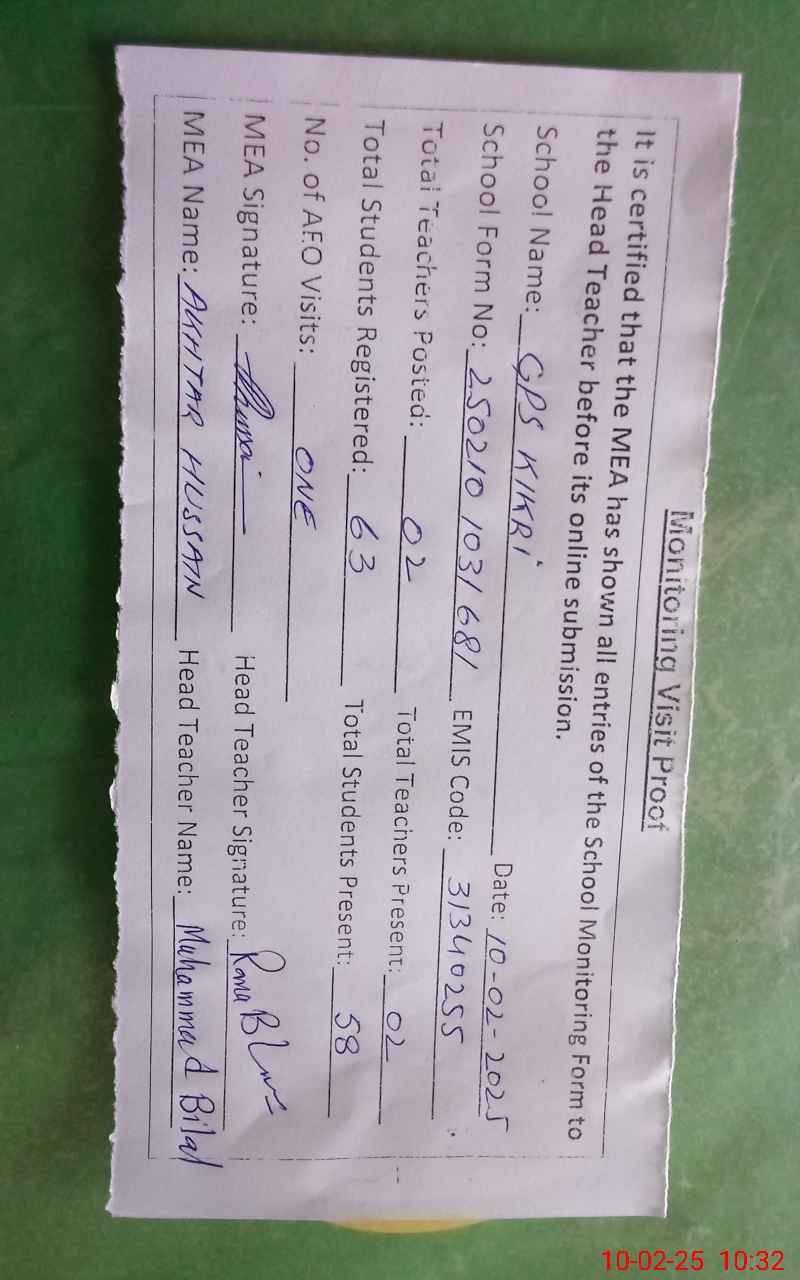 Monitoring Visit Proof
It is certified that the MEA has shown all entries of the School Monitoring Form to
the Head Teacher before its online submission.
School Name: GPS KIKRI Date: 10-02-2025
School Form No: 250210 1031681 EMIS Code: 31340255
Total Teachers Posted: 02 Total Teachers Present: 02
Total Students Registered: 63 Total Students Present: 58
No. of AEO Visits: ONE
MEA Signature: Head Teacher Signature: Rana
MEA Name: AKHTAR HUSSAIN Head Teacher Name: Muhammad Bilal
10-02-25 10:32